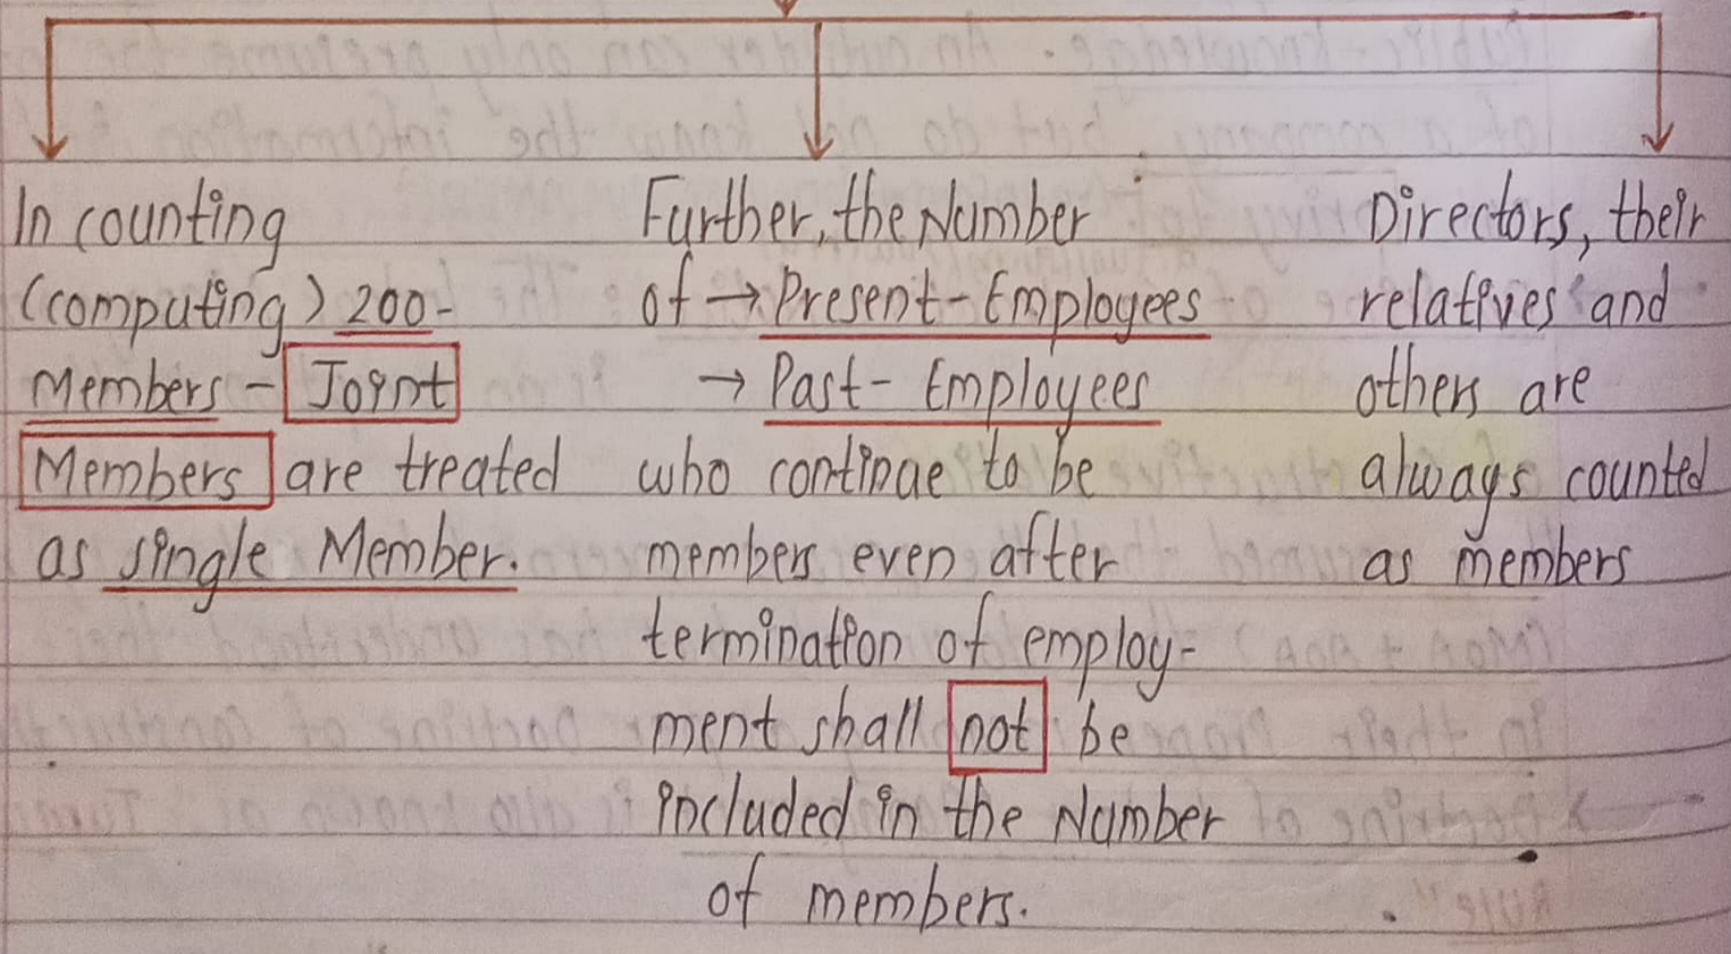 In counting
(computing) 200-
Members - Joint
Members are treated
as single Member.
Further, the Number
of → Present - Employees
→ Past - Employees
who continue to be
members even after
termination of employ-
ment shall not be
included in the Number
of members.
Directors, their
relatives and
others are
always counted
as members